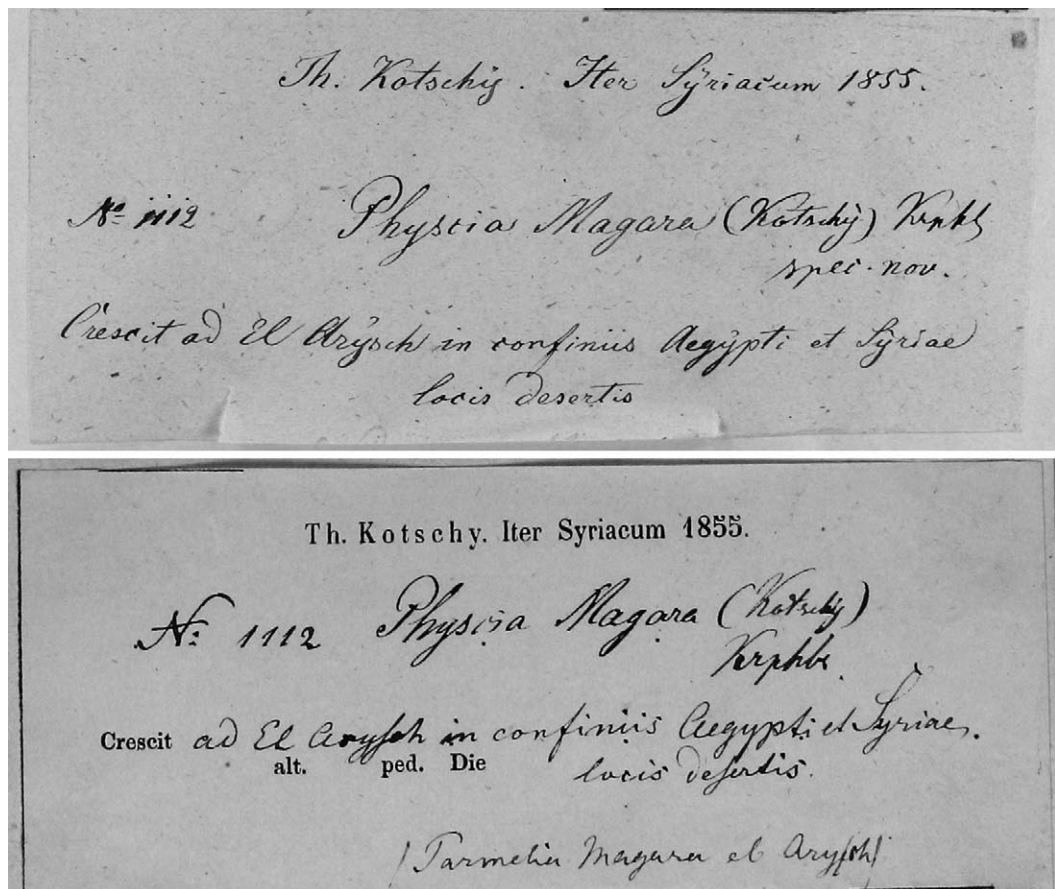 Th. Kotschy. Iter Syriacum 1855.
No 1112 Physcia Magara (Kotschy) Krphb
spec. nov.
Crescit ad El Arysch in confiniis Aegypti et Syriae
locis desertis
Th. Kotschy. Iter Syriacum 1855.
No: 1112 Physcia Magara (Kotschy)
Krphb.
Crescit ad El Aryſch in confiniis Aegypti et Syriae.
alt. ped. Die locis deſertis.
(Parmelia Magara el Aryſch)